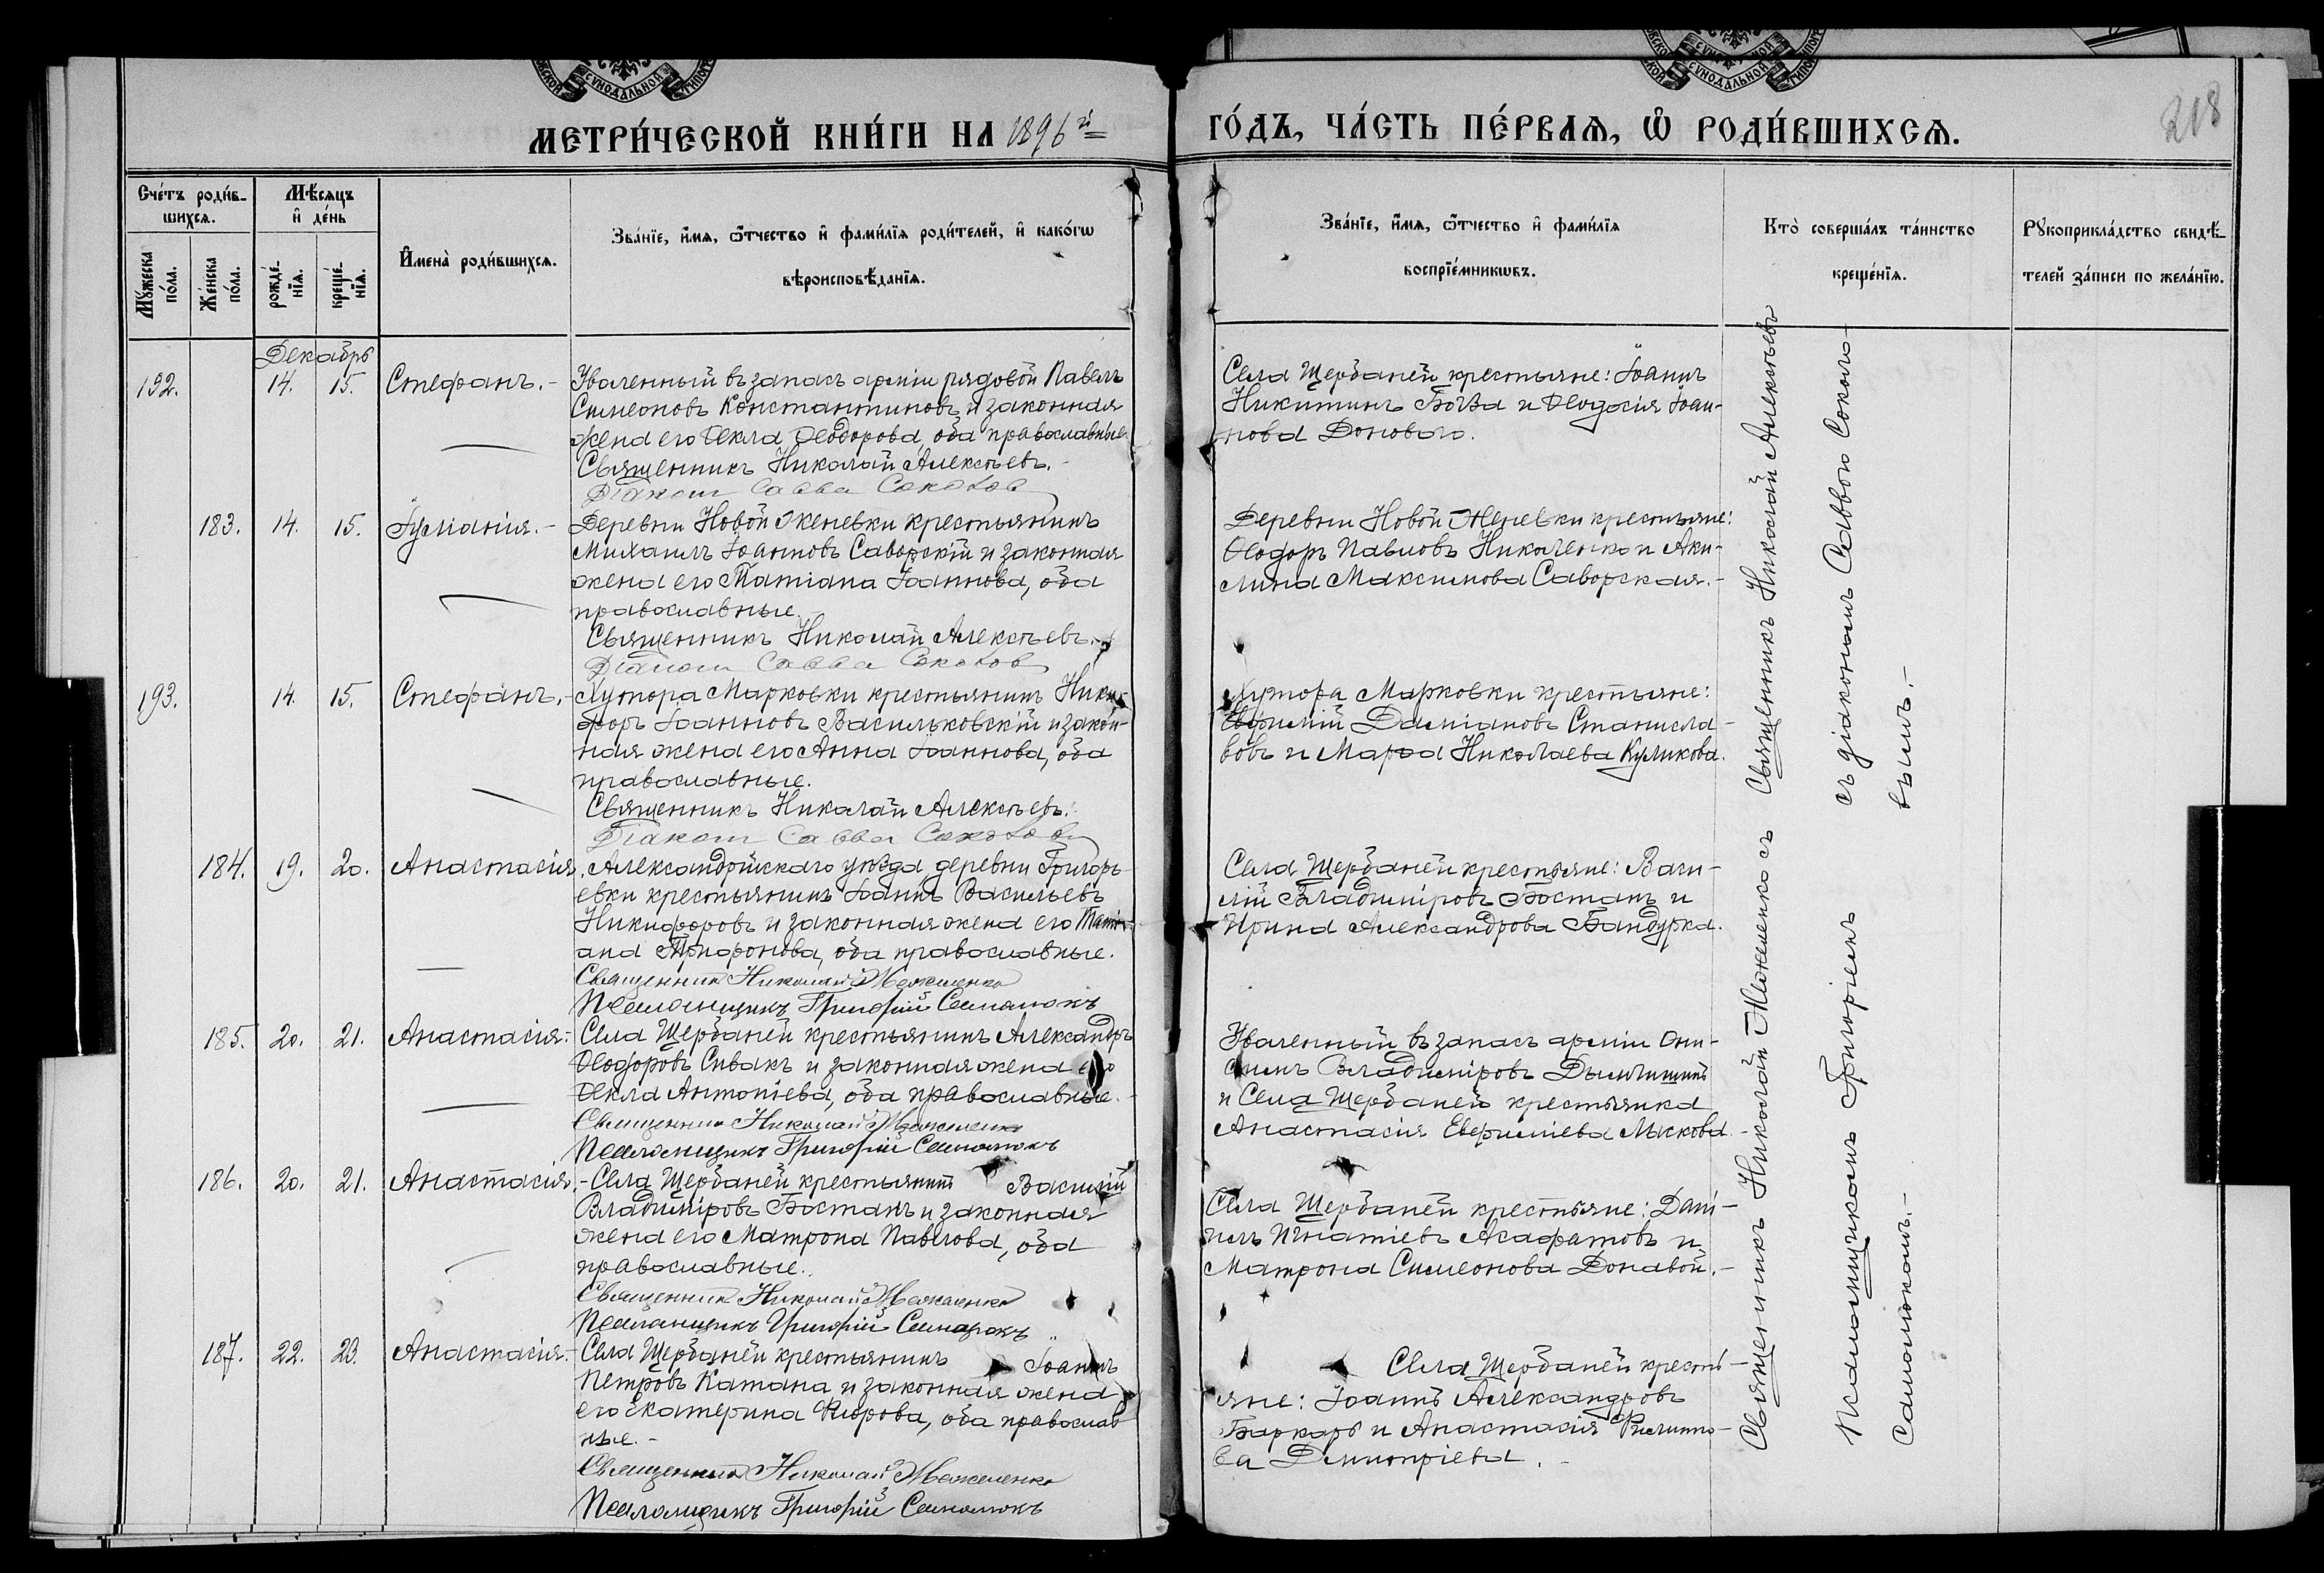 МЕТРИ́ЧЕСКОЙ КНИ́ГИ НА 1896й
ГО́ДЪ, ЧА́СТЬ ПЕ́РВАЯ, Ѡ РОДИ́ВШИХСЯ.
218
Сче́тъ роди́в-
шихся.
Мѣ́сяцъ
и де́нь
Му́жеска
по́ла.
Же́нска
по́ла.
рожде́-
нїя.
креще́-
нїя.
Имена̀ роди́вшихся.
Зва́нїе, и́мя, ѻ́тчество и фами́лїя роди́телей, и како́гѡ
вѣроисповѣ́данїя.
Зва́нїе, и́мя, ѻ́тчество и фами́лїя
воспрїе́мникѡвъ.
Кто̀ соверша́лъ та́инство
креще́нїя.
Рꙋкоприкла́дство свидѣ́-
телей за́писи по жела́нїю.
Декабрь
192. 14. 15. Стефанъ.-
Уволенный въ запасъ арміи рядовой Павелъ
Симеоновъ Константиновъ и законная
жена его Ѳекла Ѳеодорова, оба православные
Священникъ Николай Алексѣевъ.-
Діаконъ Савва Соколов
Села Щербаней крестьяне: Іоаннъ
Никитинъ Бовза и Ѳеодосія Іоан-
нова Донового.
183. 14. 15. Іуліанія.-
Деревни Новой Женевки крестьянинъ
Михаилъ Іоанновъ Саворскій и законная
жена его Татіана Іоаннова, оба
православные.
Священникъ Николай Алексѣевъ.-
Діаконъ Савва Соколов
Деревни Новой Женевки крестьяне:
Ѳеодоръ Павловъ Николенко и Аки-
лина Максимова Саворская.-
193. 14. 15. Стефанъ.-
Хутора Марковки крестьянинъ Ники-
форъ Іоанновъ Васильковскій и закон-
ная жена его Анна Іоаннова, оба
православные.
Священникъ Николай Алексѣевъ.
Діаконъ Савва Соколовъ
Хутора Марковки крестьяне:
Евфимій Даміановъ Станисла-
вовъ и Марѳа Николаева Куликова.
184. 19. 20. Анастасія.
Александрійскаго уѣзда деревни Григорь-
евки крестьянинъ Іоаннъ Васильевъ
Никифоровъ и законная жена его Таті-
ана Трифонова, оба православные.
Священникъ Николай Можеленко
Псаломщикъ Григорій Самолюкъ
Села Щербаней крестьяне: Васи-
лій Владиміровъ Бостанъ и
Ирина Александрова Бандурка.
185. 20. 21. Анастасія.-
Села Щербаней крестьянинъ Александръ
Ѳеодоровъ Сивакъ и законная жена его
Ѳекла Антоніева, оба православные.-
Священникъ Николай Можеленко
Псаломщикъ Григорій Самолюкъ
Уволенный въ запасъ арміи Они-
симъ Владиміровъ
и Села Щербаней крестьянка
Анастасія Евфиміева Лыскова.-
186. 20. 21. Анастасія.
- Села Щербаней крестьянинъ Василій
Владиміровъ Бостанъ и законная
жена его Матрона Павлова, оба
православные.
Священникъ Николай Можеленко
Псаломщикъ Григорій Самолюкъ
Села Щербаней крестьяне: Дані-
илъ Игнатіевъ Асафатовъ и
Матрона Симеонова Доновой.-
187. 22. 23. Анастасія.-
Села Щербаней крестьянинъ Іоаннъ
Петровъ Катана и законная жена
его Екатерина Флорова, оба православ
ные.-
Священникъ Николай Можеленко
Псаломщикъ Григорій Самолюкъ
Села Щербаней кресть-
яне: Іоаннъ Александровъ
Баркарь и Анастасія Филиппо-
ва Димитріева.-
Священникъ Николай Алексѣевъ
съ діакономъ Саввою Соколо-
вымъ.-
Священникъ Николай Можеленко съ
псаломщикомъ Григоріемъ
Самолюкомъ.-